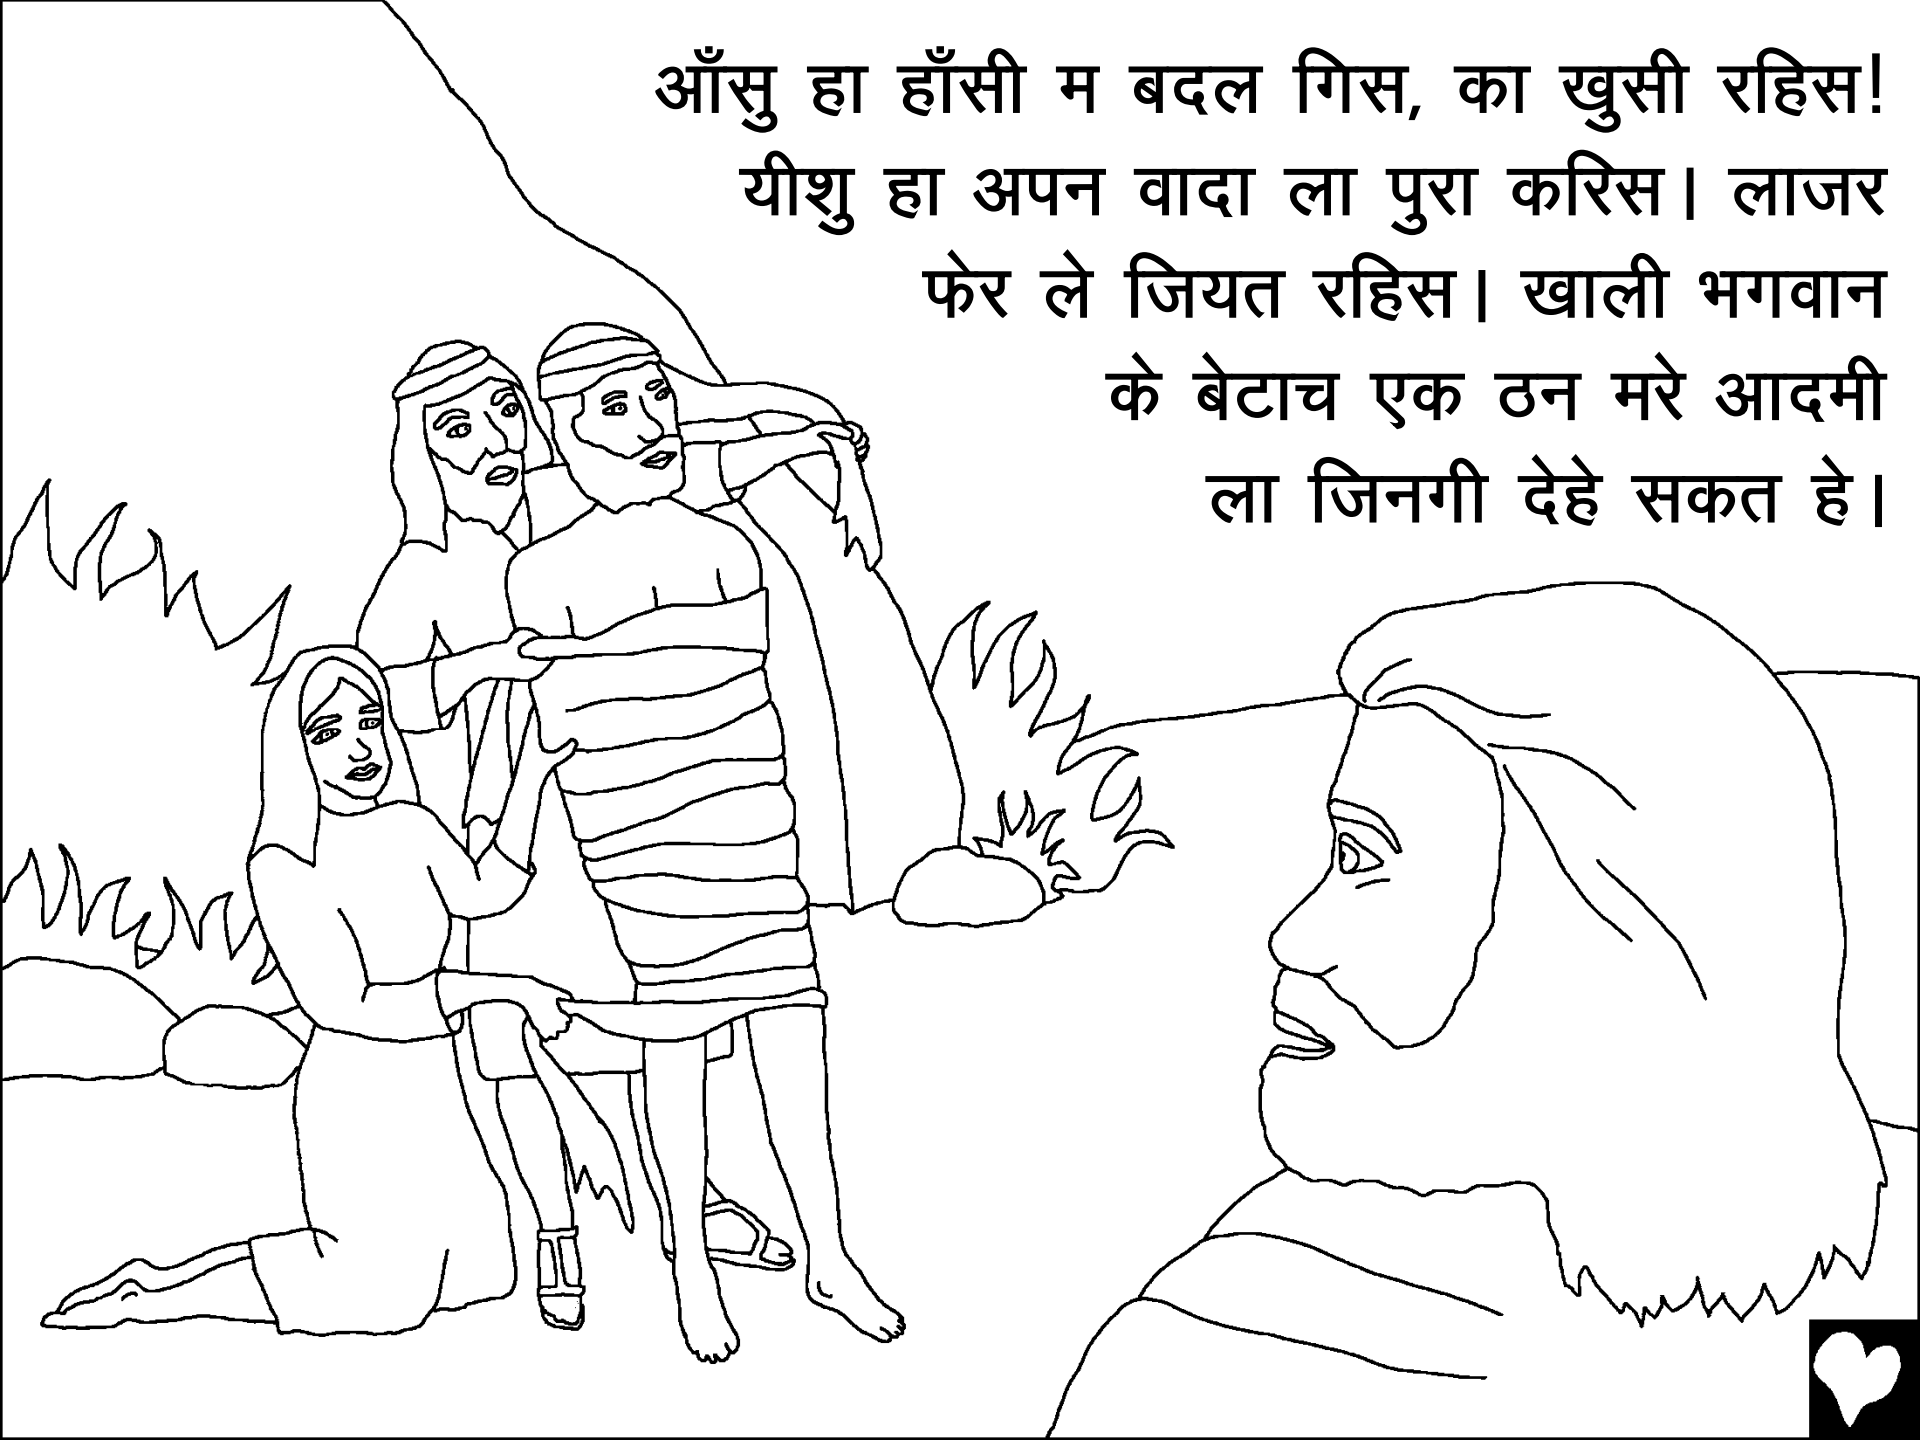 आँसु हा हाँसी म बदल गिस, का खुसी रहिस!
यीशु हा अपन वादा ला पुरा करिस। लाजर
फेर ले जियत रहिस। खाली भगवान
के बेटाच एक ठन मरे आदमी
ला जिनगी देहे सकत हे।